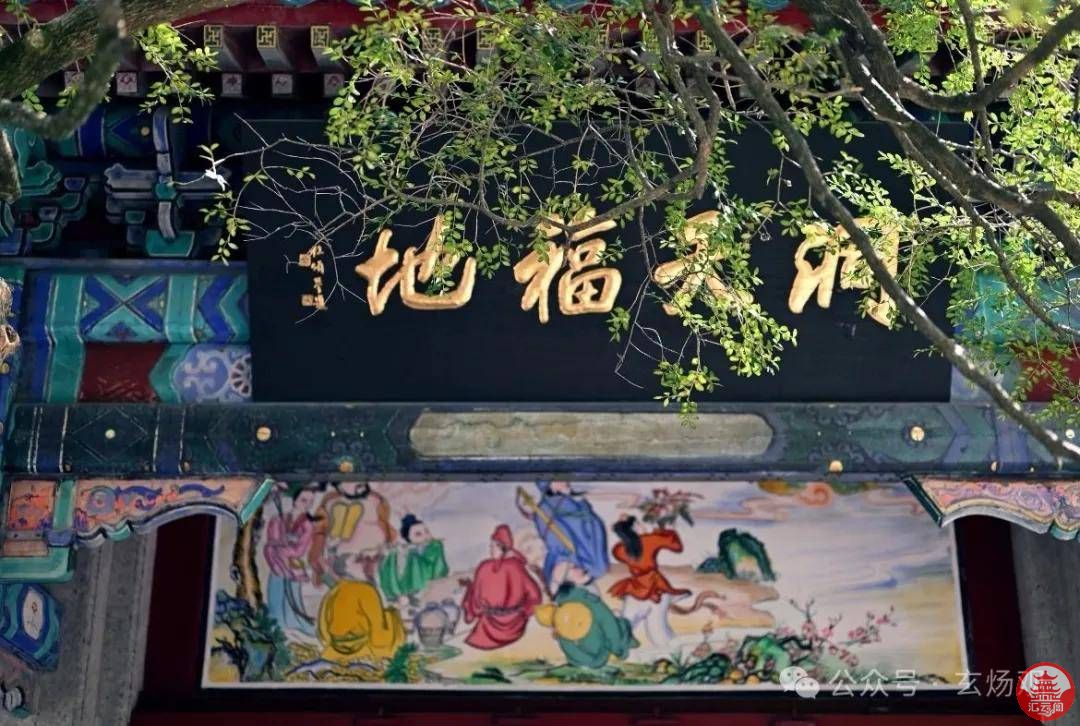 洞天福地
公众号 · 玄炀
汇云阁